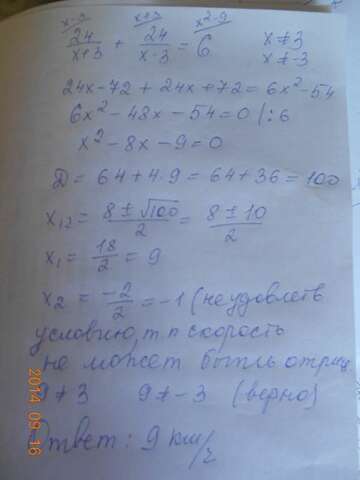 x-3 x+3 x²-9
24/x+3 + 24/x-3 = 6 x≠3
x≠-3
24x-72+24x+72=6x²-54
6x²-48x-54=0 /:6
x²-8x-9=0
D=64+4·9=64+36=100
x₁,₂= 8±√100/2 = 8±10/2
x₁= 18/2 = 9
x₂= -2/2 = -1 (не удовлетв
условию, т п скорость
не может быть отриц
9≠3 9≠-3 (верно)
Ответ: 9 км/ч
2014 09 16